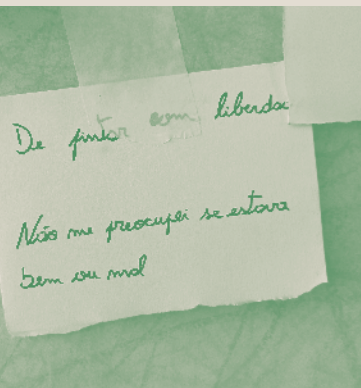 De pintar com liberda
Não me preocupei se estava
bem ou mal